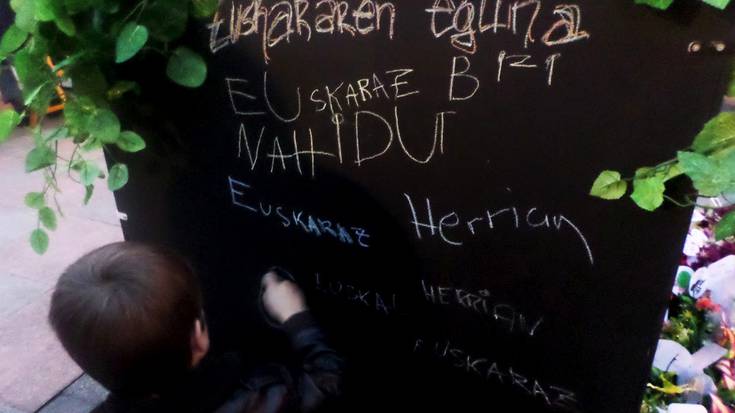 Euskararen eguna
EUSKARAZ BIZI
NAHI DUT
EUSKARAZ Herrian
EUSKAL HERRIAN
EUSKARAZ